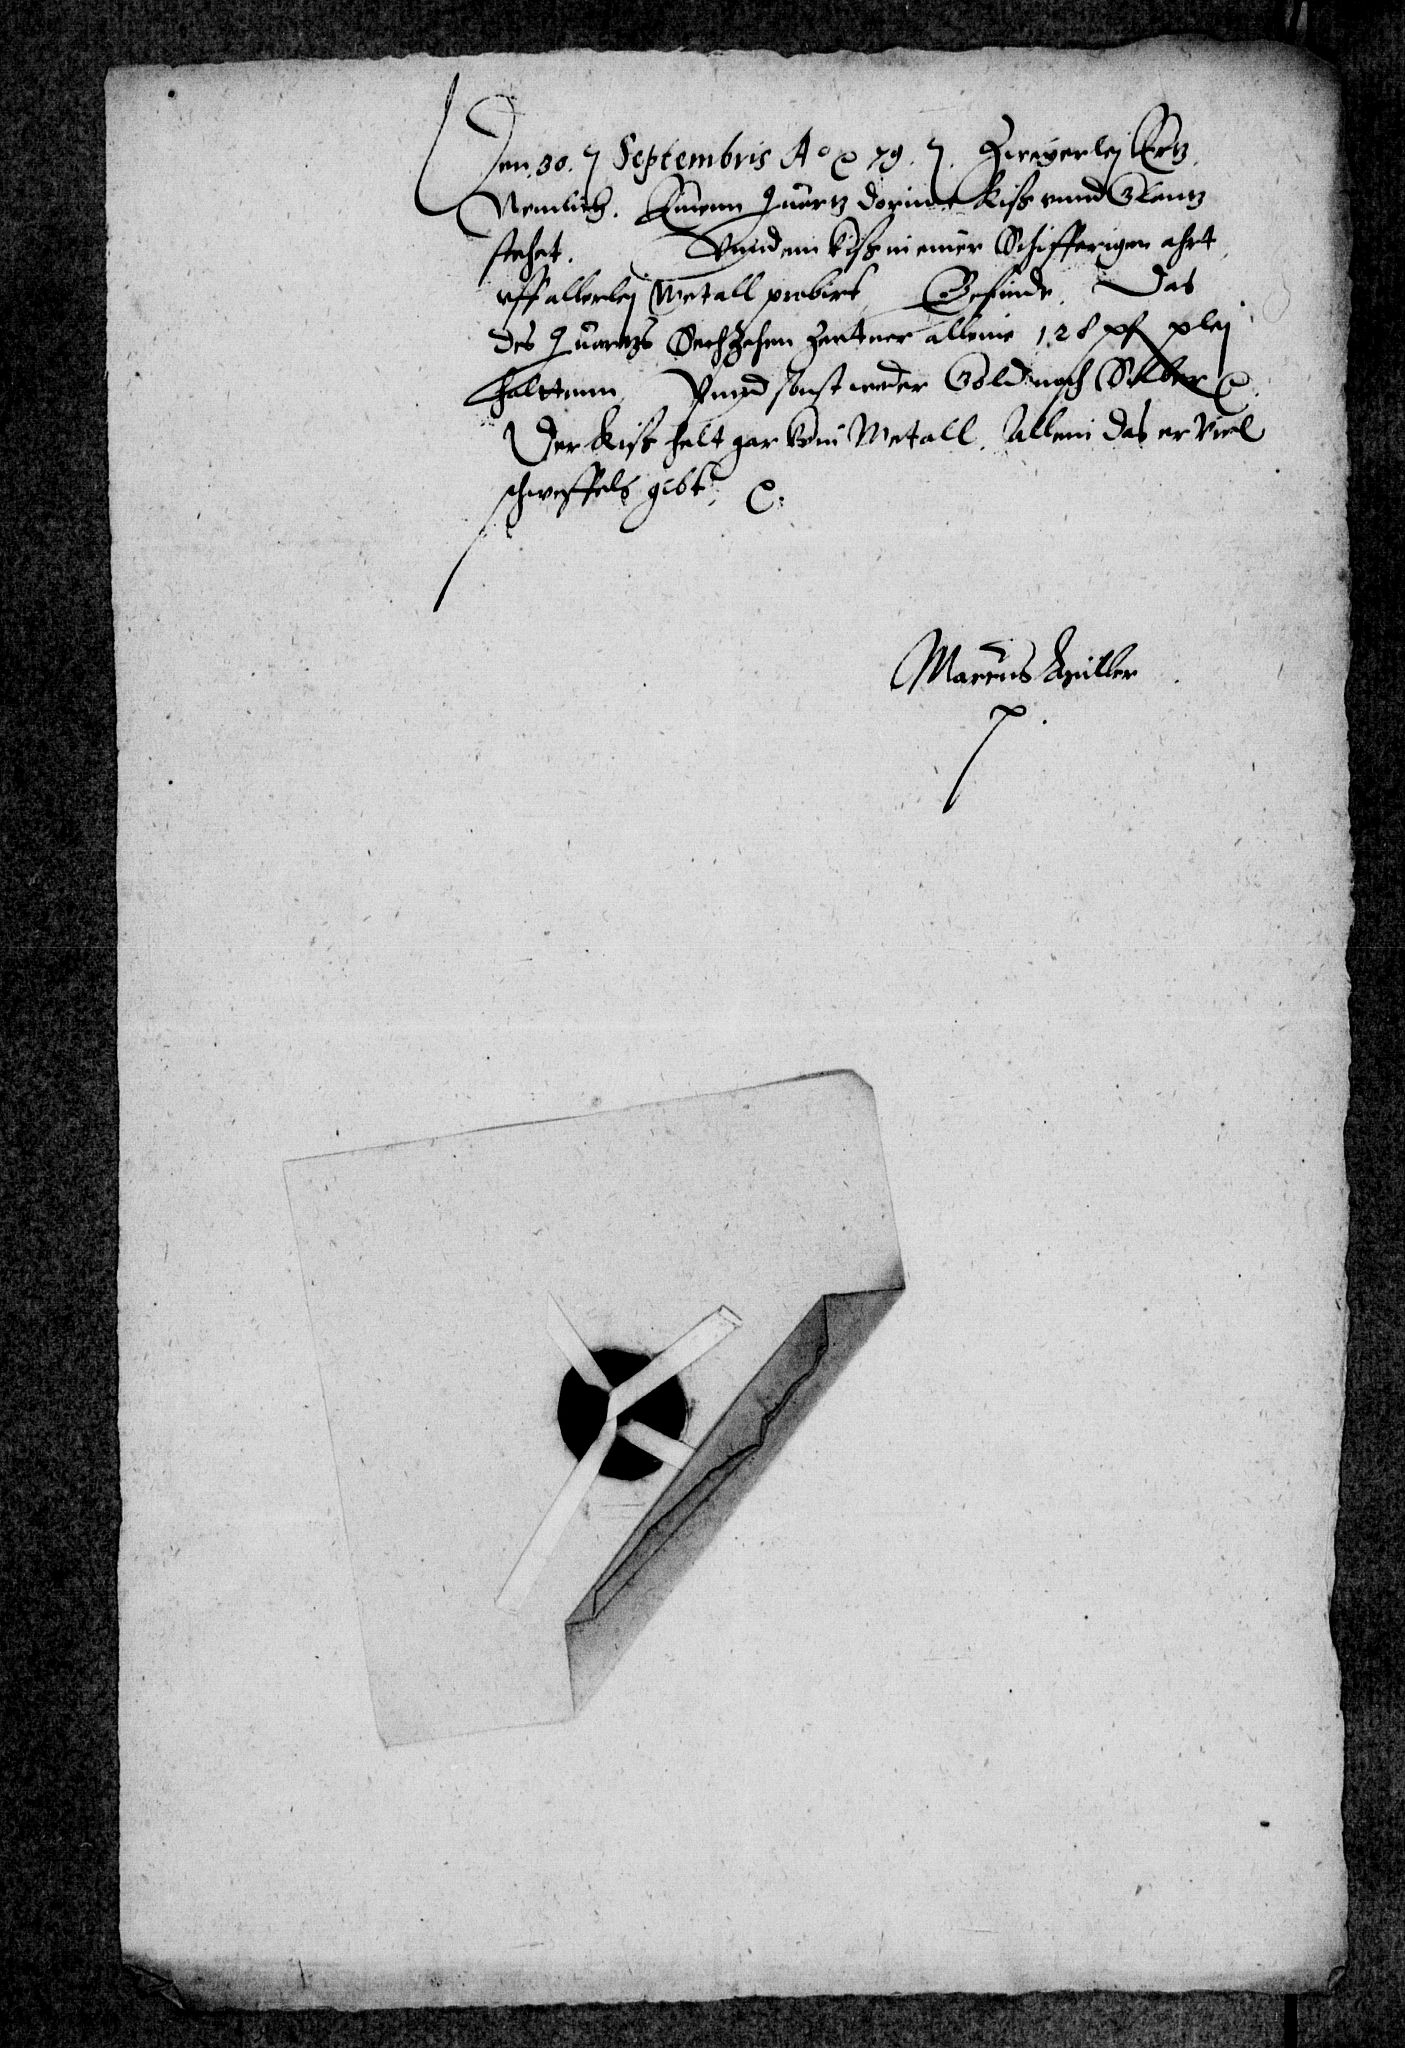 Den 30. Septembris Ao 79. Zweyerlej Ertz
Nemlich. Einenn Quartz dorinne Kiß vnnd Glantz
stehet. Vnnd ein Kiß in einer Schifferigen ahrt
vff allerlej Metall probirt, Befinde, Das
des Quartzs Sechzehen Zentner alleine 128 pf pleij
halttenn, Vnnd sonst weder Gold noch Silber
Der Kiß helt gar kein Metall. Allein das er Viel
schweffels gibt.
Marcus